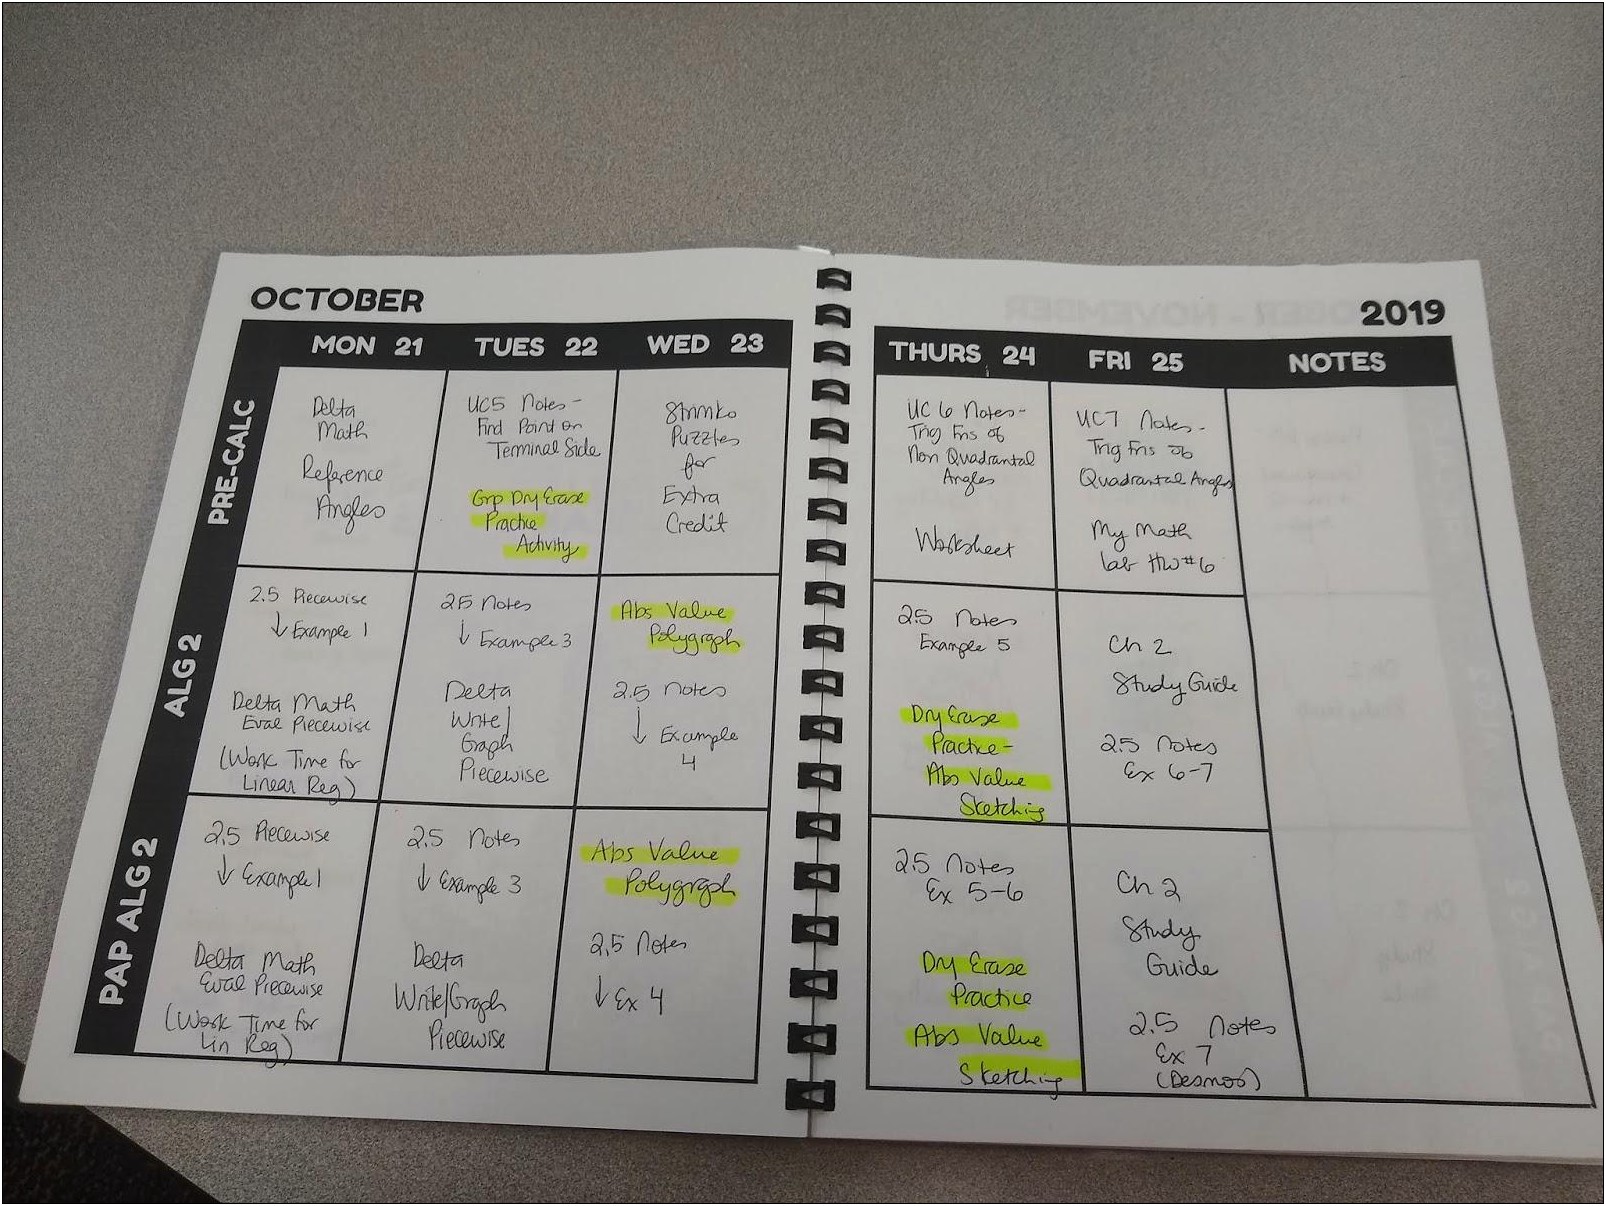 OCTOBER
2019
MON 21
TUES 22
WED 23
THURS 24
FRI 25
NOTES
PRE-CALC
Delta
Math
Reference
Angles
UC5 Notes -
Find Point on
Terminal Side
Grp Dry Erase
Practice
Activity
Strimko
Puzzles
for
Extra
Credit
UC 6 Notes -
Trig Fns of
Non Quadrantal
Angles
Worksheet
UC7 Notes -
Trig Fns of
Quadrantal Angles
My Math
lab HW #6
ALG 2
2.5 Piecewise
↓ Example 1
Delta Math
Eval Piecewise
(Work Time for
Linear Reg)
2.5 Notes
↓ Example 3
Delta
Write/
Graph
Piecewise
Abs Value
Polygraph
2.5 Notes
↓ Example
4
2.5 Notes
Example 5
Dry Erase
Practice -
Abs Value
Sketching
Ch 2
Study Guide
2.5 Notes
Ex 6-7
PAP ALG 2
2.5 Piecewise
↓ Example 1
Delta Math
Eval Piecewise
(Work Time for
Lin Reg)
2.5 Notes
↓ Example 3
Delta
Write/Graph
Piecewise
Abs Value
Polygraph
2.5 Notes
↓ Ex 4
2.5 Notes
Ex 5-6
Dry Erase
Practice
Abs Value
Sketching
Ch 2
Study
Guide
2.5 Notes
Ex 7
(Desmos)